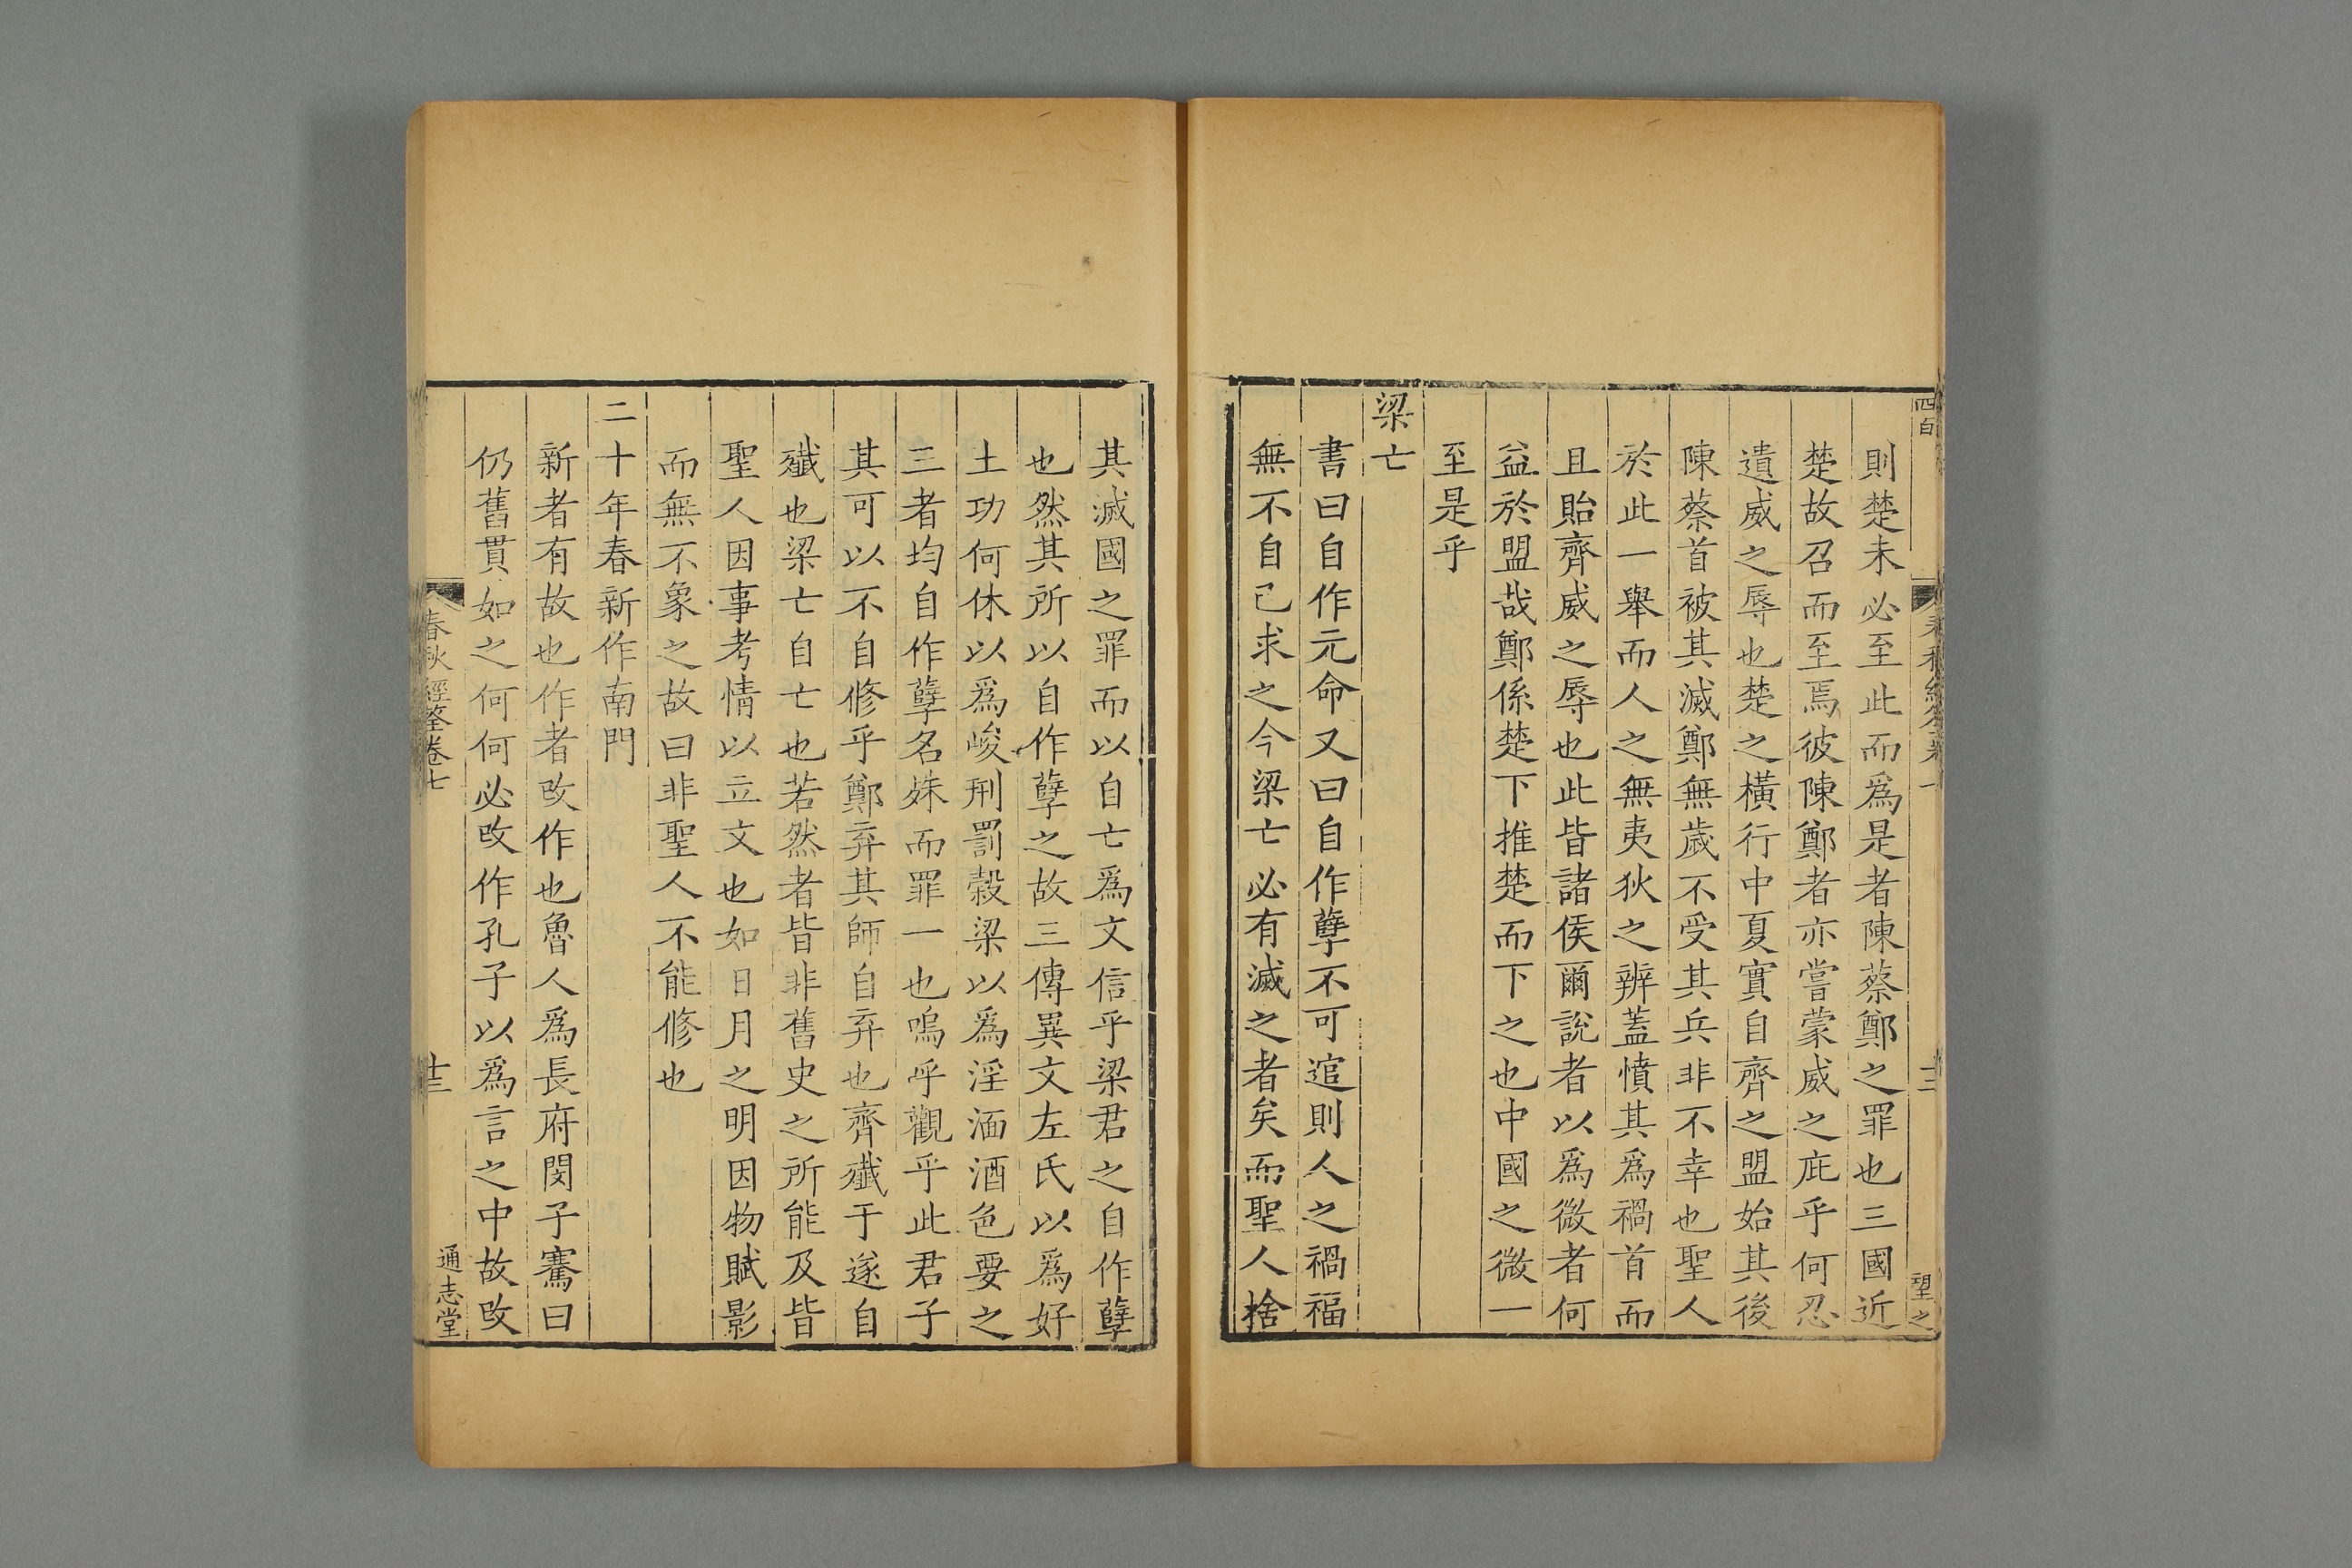 則楚未必至此而爲是者陳蔡鄭之罪也三國近
楚故召而至焉彼陳鄭者亦嘗蒙威之庇乎何忍
遺威之辱也楚之橫行中夏實自齊之盟始其後
陳蔡首被其滅鄭無歲不受其兵非不幸也聖人
於此一舉而人之無夷狄之辨蓋憤其爲禍首而
且貽齊威之辱也此皆諸侯爾說者以爲微者何
益於盟哉鄭係楚下推楚而下之也中國之微一
至是乎
梁亡
書曰自作元命又曰自作孽不可逭則人之禍福
無不自己求之今梁亡必有滅之者矣而聖人捨
其滅國之罪而以自亡爲文信乎梁君之自作孽
也然其所以自作孽之故三傳異文左氏以爲好
土功何休以爲峻刑罰穀梁以爲淫湎酒色要之
三者均自作孽名姝而罪一也嗚乎觀乎此君子
其可以不自修乎鄭弃其師自弃也齊殲于遂自
殲也梁亡自亡也若然者皆非舊史之所能及皆
聖人因事考情以立文也如日月之明因物賦影
而無不象之故曰非聖人不能修也
二十年春新作南門
新者有故也作者改作也魯人爲長府閔子騫曰
仍舊貫如之何何必改作孔子以爲言之中故改
春秋經筌卷七
十三
通志堂